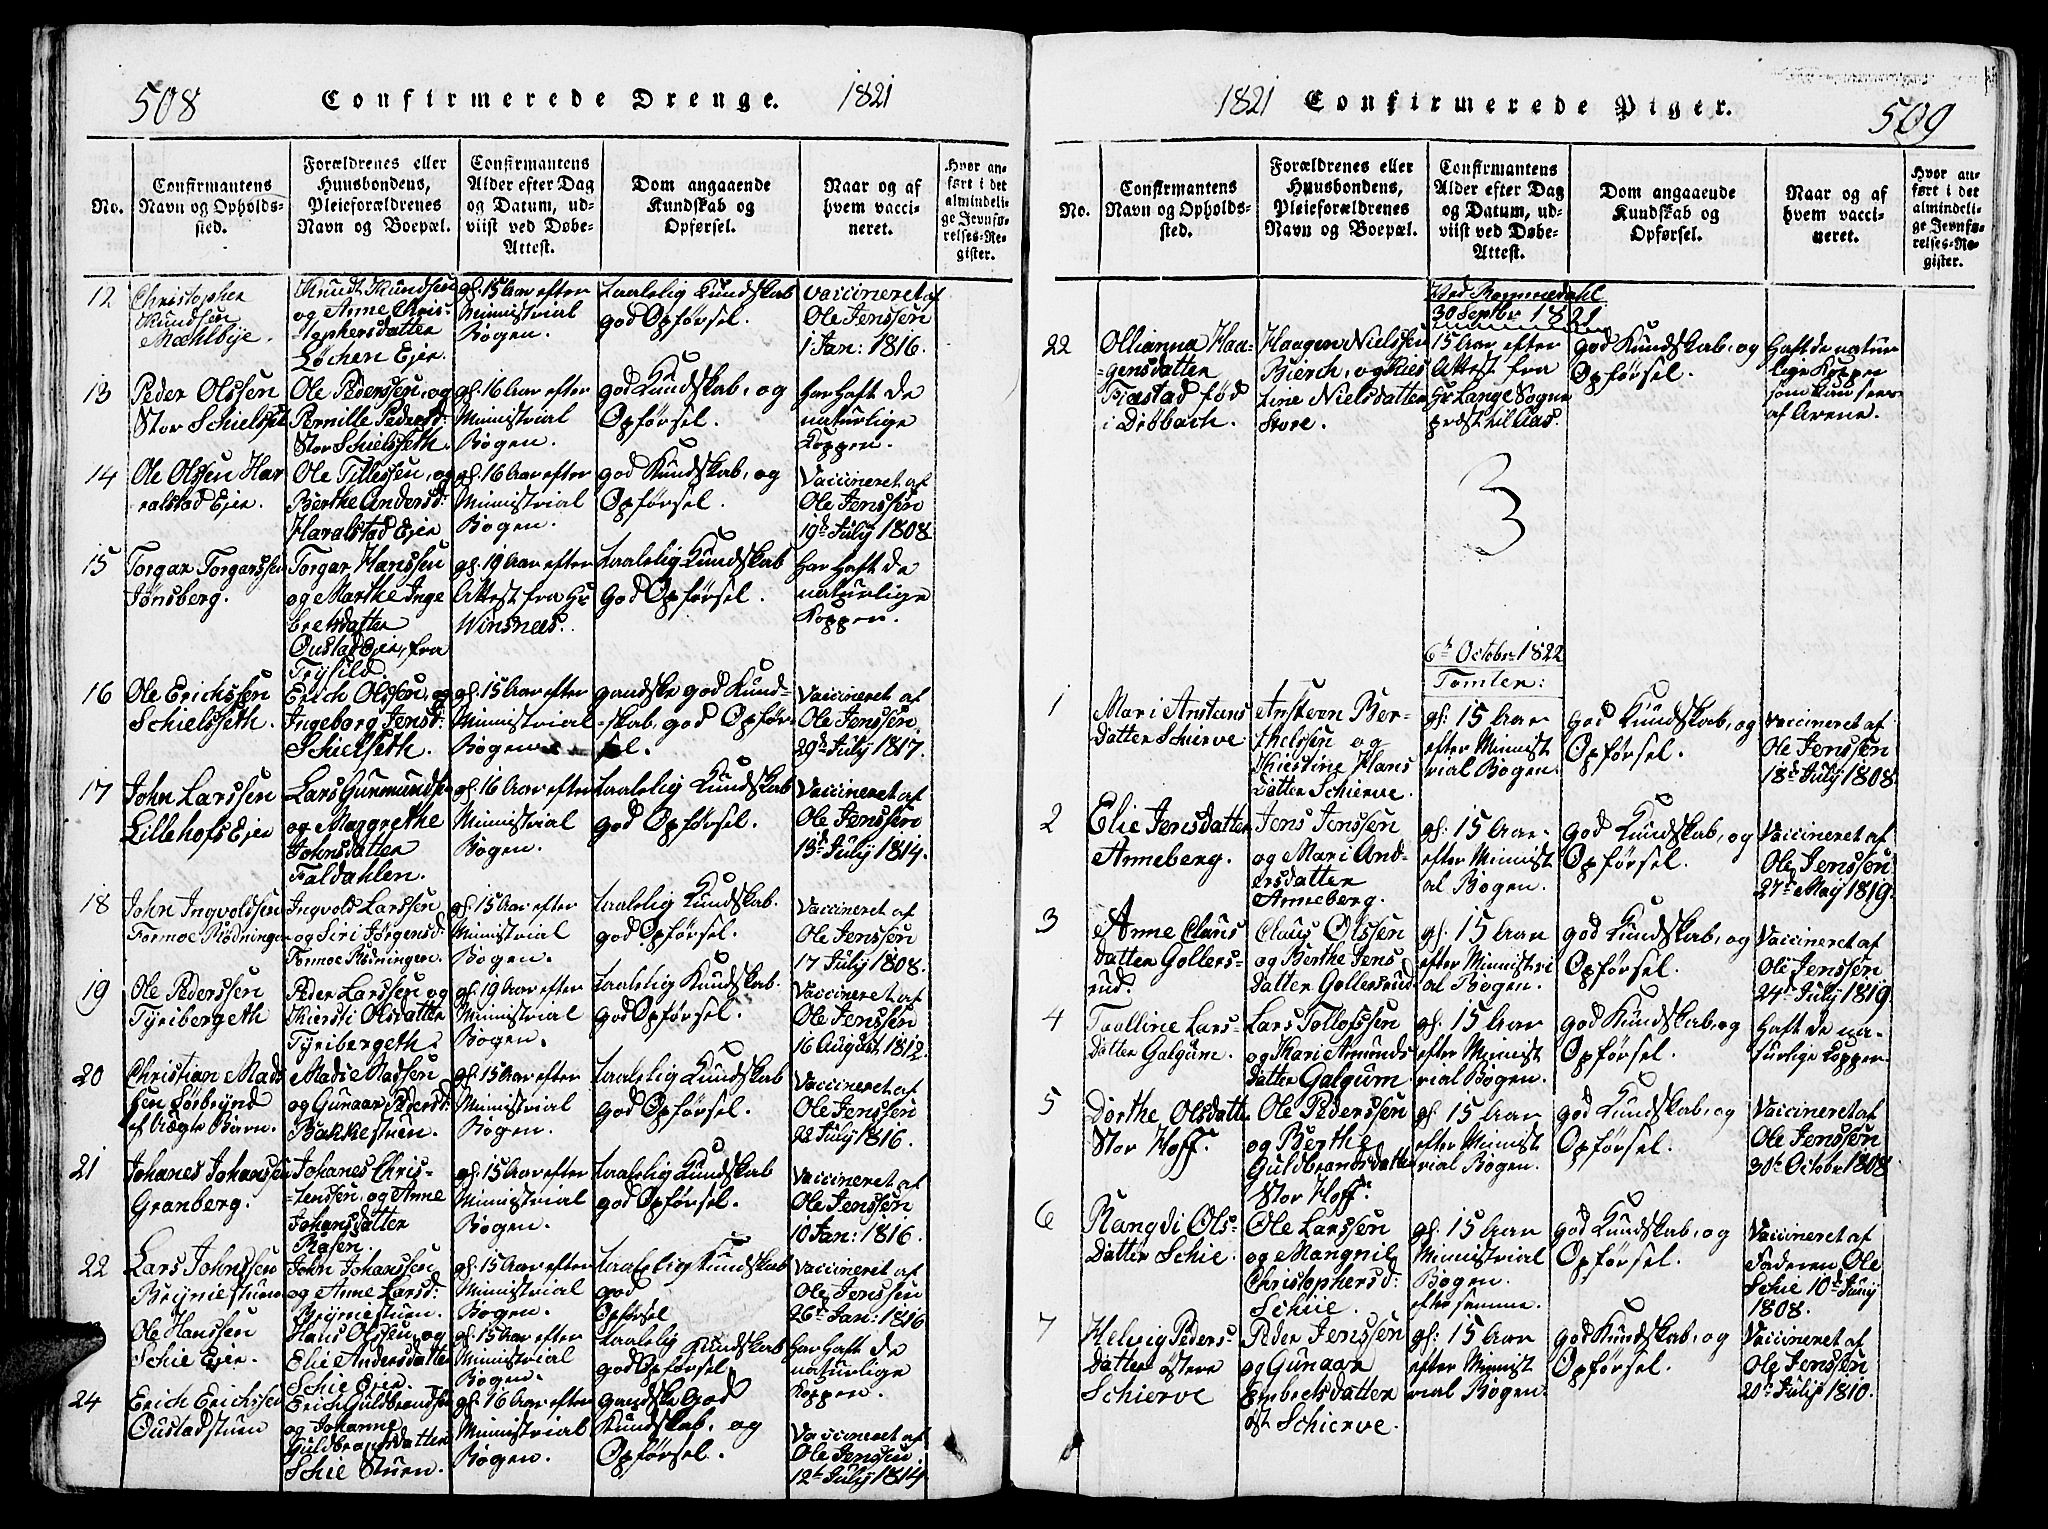 508 Confirmerede Drenge. 1821
No.
Confirmantens
Navn og Opholds-
sted.
Forældrenes eller
Huusbondens,
Pleieforældrenes
Navn og Boepæl.
Confirmantens
Alder efter Dag
og Datum, ud-
viist ved Døbe-
Attest.
Dom angaaende
Kundskab og
Opførsel.
Naar og af
hvem vacci-
neret.
Hvor an-
ført i det
almindeli-
ge Jevnfø-
relses-Re-
gister.
12
Christopher
Knudsen
Mæhlbye.
Knudt Knudsen
og Anne Chris-
tophersdatter
Løchen Ejer.
gl. 15 Aar efter
Ministrial
Bogen.
taalelig Kundskab
god Opførsel.
Vaccineret af
Ole Jenssen
1 Jan: 1816.
13
Peder Olssen
Stor Schielsset
Ole Pederssen, og
Pernille Pedersd:
Stor Schielsseth.
gl. 16 Aar efter
Ministrial
Bogen.
god Kundskab, og
Opførsel.
Har Haft de
naturlige
Kopper.
14
Ole Olssen Har
ralstad Ejer.
Ole Tillessen, og
Berthe Andersd:
Haralstad Ejer
gl. 16 Aar efter
Ministrial
Bogen.
god Kundskab, og
Opførsel.
Vaccineret af
Ole Jenssen
19d July 1808.
15
Torgar Torgarssen
Jønsberg.
Torgar Hanssen
og Marthe Inge
bretsdatter
Oustad Ejer, fra
Trysild.
gl. 19 Aar efter
Attest fra Hr
Winsnees.
taalelig Kundskab
god Opførsel.
Har Haft de
naturlige
Kopper.
16
Ole Erichssen
Schielsseth.
Erich Olssen, og
Ingeborg Jensd:
Schielseth.
gl. 15 Aar efter
Ministrial
Bogen.
gandske god Kund-
-skab, god Opfør-
sel.
Vaccineret af
Ole Jenssen.
29d July 1817.
17
John Larssen
Lillehofs Ejer
Lars Gunmundsen
og Maggrethe
Johnsdatter
Faldahlen.
gl. 16 Aar efter
Ministrial
Bogen.
taalelig Kundskab
god Opførsel.
Vaccineret af
Ole Jenssen
13d July 1814.
18
John Ingvoldssen
Formoe Rødningen
Ingvold Larssen
og Siri Jørgensd:
Formoe Rødningen.
gl. 15 Aar efter
Ministrial
Bogen.
taalelig Kundskab.
god Opførsel.
Vaccineret af
Ole Jenssen
17 July 1808.
19
Ole Pederssen
Tyribergeth
Peder Larssen og
Kiersti Olsdatter
Tyribergeth.
gl. 19 Aar efter
Ministrial
Bogen.
taalelig Kundskab.
god Opførsel.
Vaccineret af
Ole Jenssen
16 August 1812.
20
Christian Mads
sen
Mads Madsen
og Gunaar Pedersd:
Bakkestuen.
gl. 15 Aar efter
Ministrial
Bogen.
taalelig Kundskab
god Opførsel.
Vaccineret af
Ole Jenssen
22 July 1816.
21
Johanes Johansen
Granberg.
Johanes Chris-
-tenssen, og Anne
Johansdatter
Rasen.
gl. 15 Aar efter
Ministrial
Bogen.
taalelig Kundskab
god Opførsel.
Vaccineret af
Ole Jenssen
10 Jan: 1816.
22
Lars Johnssen
Bryniestuen
John Johanssen
og Anne Larsd:
Bryniestuen.
gl. 15 Aar efter
Ministrial
Bogen.
taalelig Kundskab
god
Opførsel
Vaccineret af
Ole Jenssen
26t Jan: 1816
Ole Hanssen
Schie Ejer.
Hans Olssen, og
Elie Andersdatter
Schie Ejer.
gl. 15 Aar efter
Ministrial
Bogen.
taalelig Kundskab
god Opførsel.
Har Haft de
naturlige
Kopper.
24
Erich Erichssen
Oustadstuen
Erich Guldbrandsen
og Johanne
Guldbrandsdatter
Schie Stuen.
gl. 16 Aar efter
Ministrial
Bogen.
gandske God
Kundskab, og
Opførsel.
Vaccineret af
Ole Jenssen.
12t July 1814.
1821 Confirmerede Piger. 509
No.
Confirmantens
Navn og Opholds-
sted.
Forældrenes eller
Huusbondens,
Pleieforældrenes
Navn og Boepæl.
Confirmantens
Alder efter Dag
og Datum, ud-
viist ved Døbe-
Attest.
Dom angaaende
Kundskab og
Opførsel.
Naar og af
hvem vacci-
neret.
Hvor an-
ført i det
almindeli-
ge Jevnfø-
relses-Re-
gister.
Ved Rommedahl
30 Septbr 1821
22
Ollianna Haa-
-gensdatter
Fiæstad fød
i Drøbach.
Haagen Nielssen
Bierch, og Kies
tine Nielsdatter
Store.
15 Aar efter
Attest fra
Hr Lange Sogne
præst til Aas.
god Kundskab, og
Opførsel.
Haft de natur
lige Kopper
som kan sees
af Arene.
3
6t Octobr 1822
Tomter:
1
Mari Anstens
datter Schierve
Ansteen Ber-
thelssen og
Kiestine Hans
datter Schierve.
gl: 15 Aar
efter Minist
rial Bogen.
god Kundskab, og
Opførsel.
Vaccineret af
Ole Jenssen
18d July 1808.
2
Elie Jensdatter
Anneberg.
Jens Jenssen
og Mari And-
ersdatter
Anneberg.
gl: 15 Aar
efter Minist
al Bogen.
god Kundskab, og
Opførsel.
Vaccineret af
Ole Jenssen
27d May 1819.
3
Anne Claus
datter Gollers-
rud.
Claus Olssen
og Berthe Jens
datter Gollersrud
gl: 15 Aar
efter Ministri
al Bogen.
god Kundskab, og
Opførsel.
Vaccineret af
Ole Jenssen
24d July 1819.
4
Taalline Lars-
datter Galgum.
Lars Tollofssen
og Kari Amunds
datter Galgum
gl. 15 Aar
efter Minist
rial Bogen.
god Kundskab, og
Opførsel.
Haft de na-
turlige Kopper
5
Dorthe Olsdatter
Stor Hoff.
Ole Pederssen
og Berthe
Guldbrandsdatter
Stor Hoff.
gl. 15 Aar
efter Minist
rial Bogen.
god Kundskab, og
Opførsel.
Vaccineret af
Ole Jenssen
30t Octobr 1808
6
Rangdi Ols-
datter Schie.
Ole Larssen
og Mangnil
Christophersd:
Schie.
gl. 15 Aar
Ministrial
Bogen.
efter samme.
god Kundskab, og
Opførsel.
Vaccineret af
Faderen Ole
Schie 10d July
1808.
7
Helvig Peders-
datter østre
Schierve
Peder Jenssen
og Gunaar
Embretsdatter
øst Schierve.
gl: 15 Aar
efter Minist
rial Bogen.
god Kundskab, og
Opførsel.
Vaccineret af
Ole Jenssen
20t July 1810.